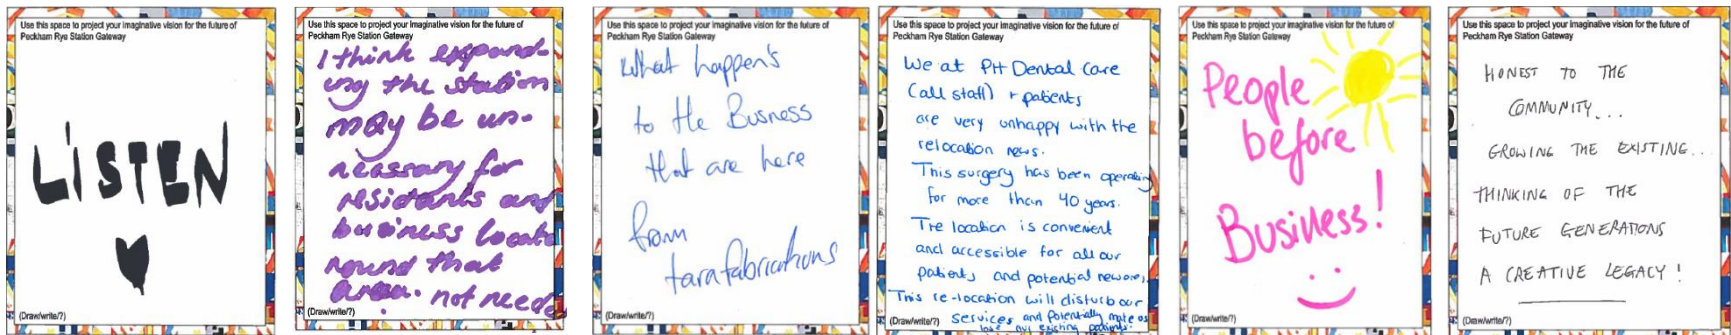 Use this space to project your imaginative vision for the future of
Peckham Rye Station Gateway
LiSTEN
(Draw/write/?)
Use this space to project your imaginative vision for the future of
Peckham Rye Station Gateway
I think expand-
ing the station
may be un-
necssary for
residants and
business locate
round that
area. not neede
(Draw/write/?)
Use this space to project your imaginative vision for the future of
Peckham Rye Station Gateway
What happen's
to the Busness
that are here
from
tarafabrications
(Draw/write/?)
Use this space to project your imaginative vision for the future of
Peckham Rye Station Gateway
We at PH Dental Care
(all staff) + patients
are very unhappy with the
relocation news.
This surgery has been operating
for more than 40 years.
The location is convenient
and accessible for all our
patients and potential new
This re-location will disturb our
services and potentially make us
lose our existing patients.
(Draw/write/?)
Use this space to project your imaginative vision for the future of
Peckham Rye Station Gateway
People
before
Business!
(Draw/write/?)
Use this space to project your imaginative vision for the future of
Peckham Rye Station Gateway
HONEST TO THE
COMMUNITY...
GROWING THE EXISTING...
THINKING OF THE
FUTURE GENERATIONS
A CREATIVE LEGACY!
(Draw/write/?)